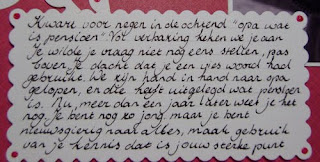 Kwart voor negen in de ochtend "opa wat
is pensioen". Vol verbazing keken we je aan
Je wilde je vraag niet nog eens stellen, was
boven. Je dacht dat je een vies woord had
gebruikt. We zijn hand in hand naar opa
gelopen, en die heeft uitgelegd wat pensioen
is. Nu, meer dan een jaar later weet je het
nog. Je bent nog zo jong, maar je bent
nieuwsgierig naar alles, maak gebruik
van je kennis dat is jouw sterke punt